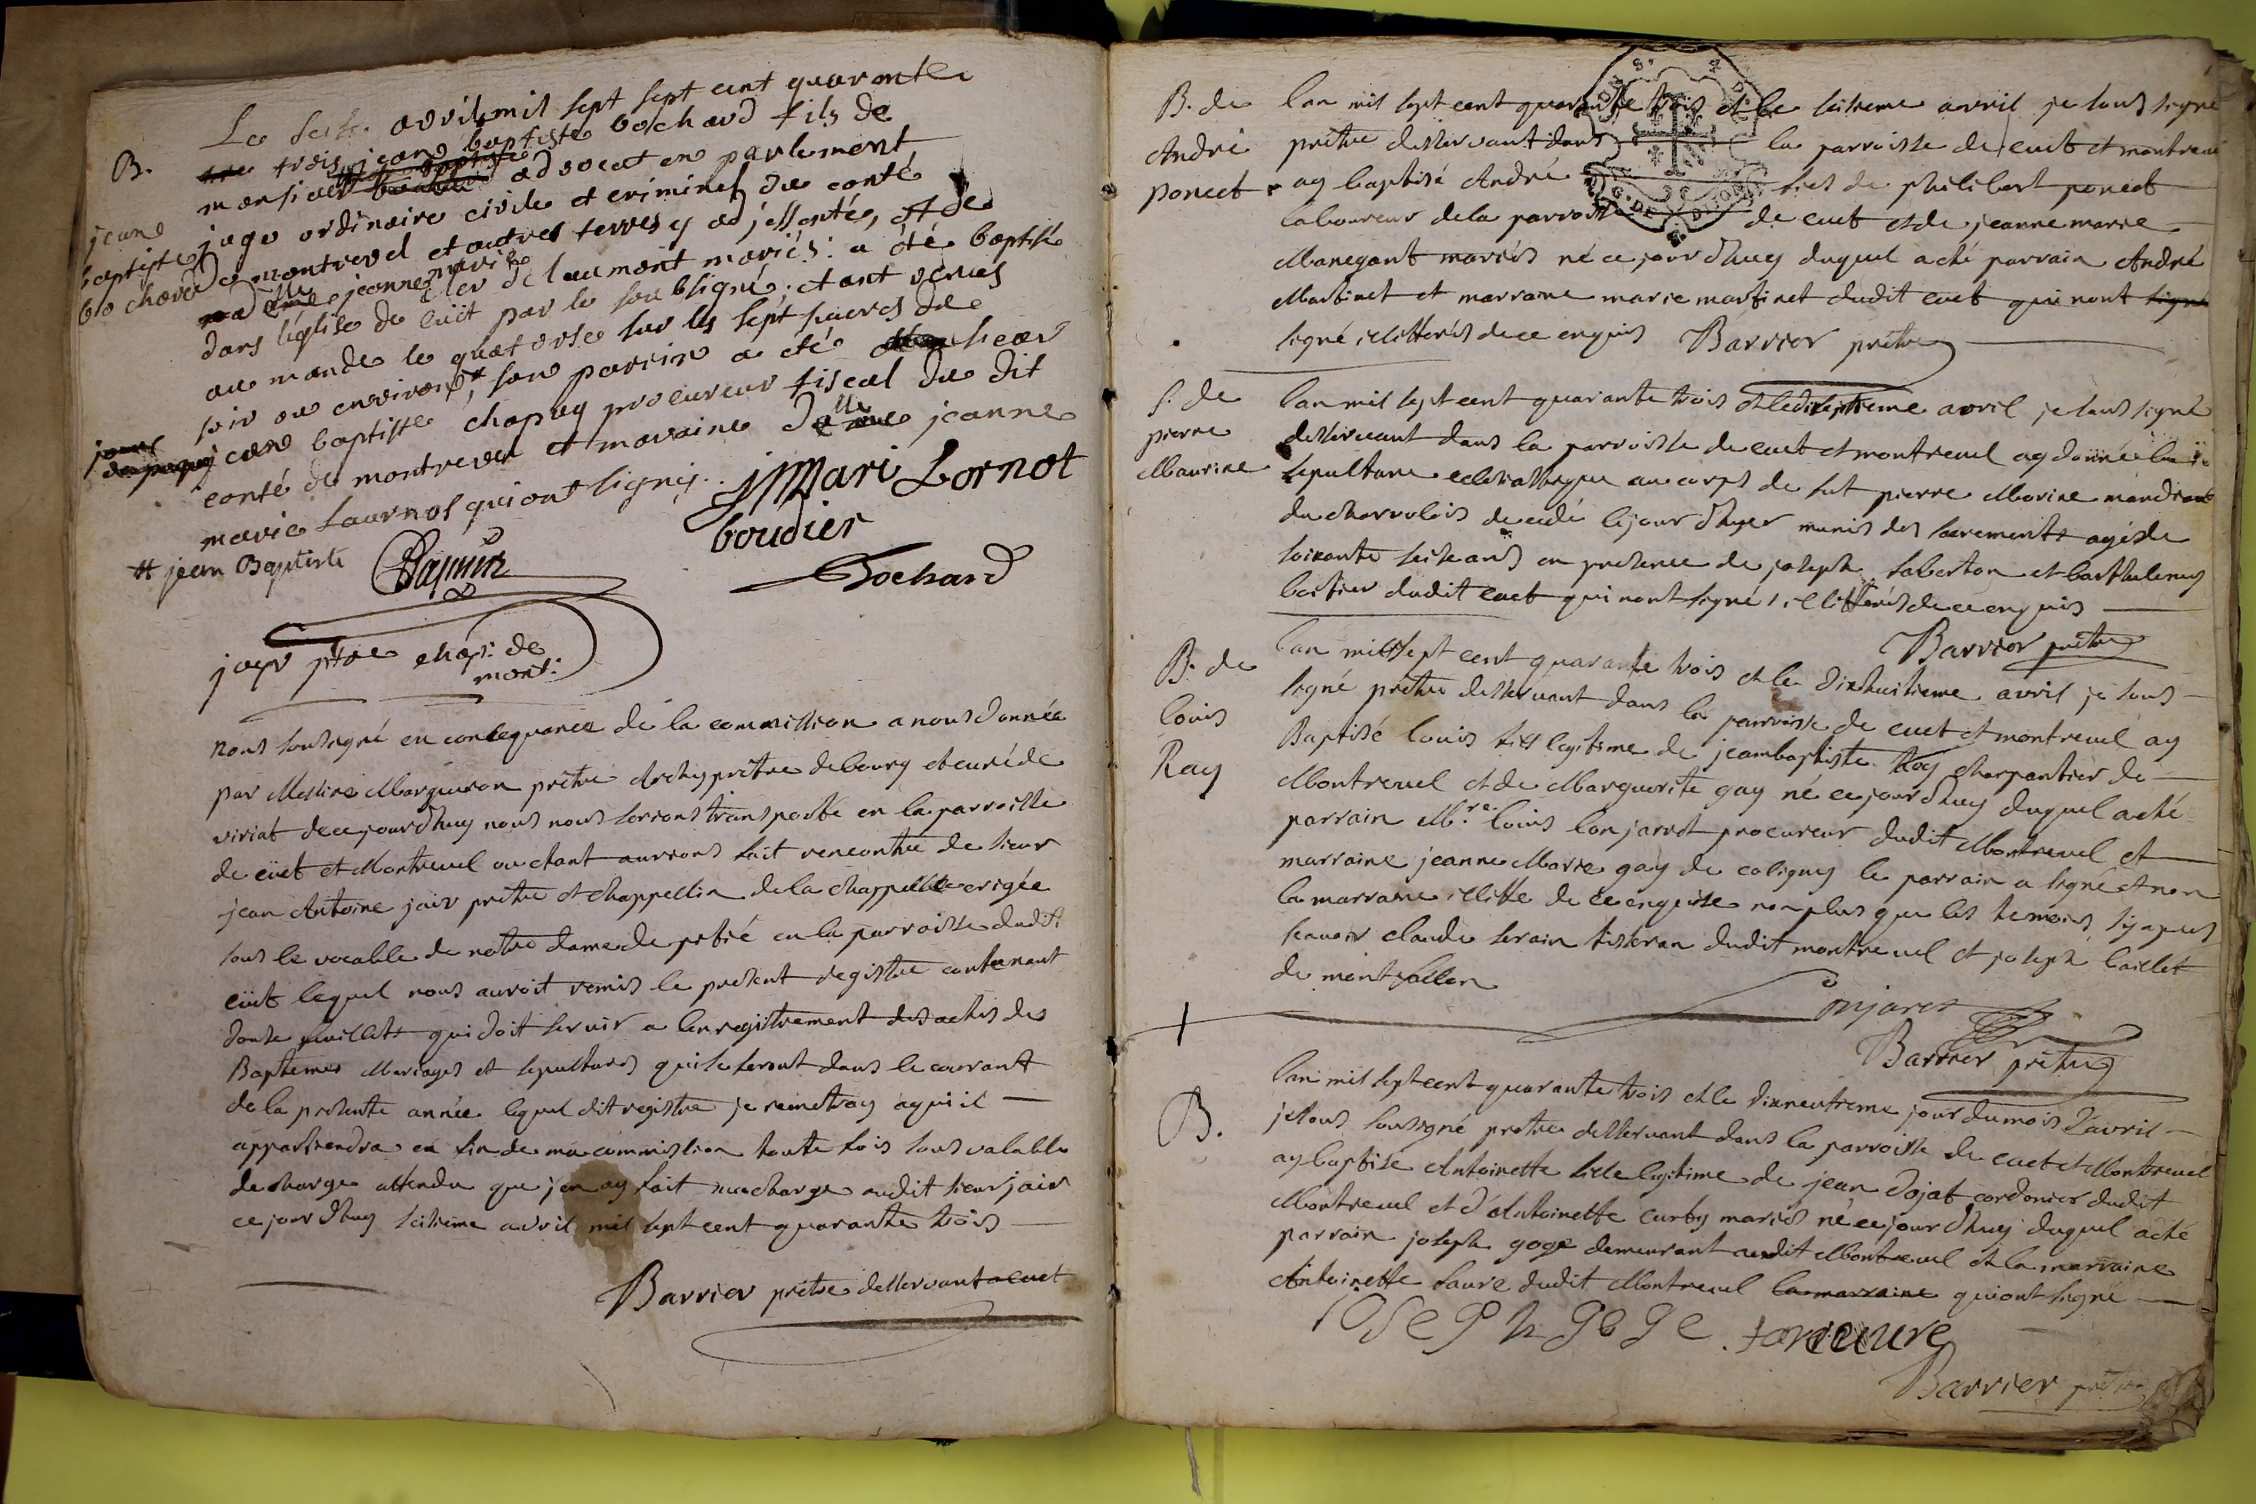 B.
Le seize avril mil sept sept cent quarante
trois jean baptiste bochard fils de
monsieur advocat en parlement
jeans
baptiste
bochard
juge ordinaire civile et criminel du conté
de montrevel et autres terres y adjessantée, et de
mad elle jeanne marie de laumont mariés: a été baptisé
dans l'église de cüit par le soubsigné. etant venus
au monde le quatorse sur les sept heures du
soir ou environ #, son parrin a été sieur
jean baptiste chapuy procureur fiscal du dit
conté de montrevel et maraine d elle jeanne
marie Lournot qui ont signéz.
jMari Lornot
boudier
# jean Baptiste
Bochard
jayr ptre chap: de
mont:
nous soussigné en consequance de la commission a nous donnée
par Messire Marguiron prêtre Archyprêtre de bourg et curé de
viriat de ce jourdhuy nous nous serions transporté en la parroisse
de cüet et Montrevel ou etant aurions fait rencontre de sieur
jean Antoine jair prêtre et chappellin de la chappelle erigée
sous le vocable de notre dame de pitié en la parroisse dudit
cüet lequel nous auroit remis le present registre contenant
douse feuillets qui doit servir a lenregistrement des actes des
Baptemes Mariages et sepultures qui se feront dans le courant
de la presente année lequel dit registre je remetray a qui il
appartiendra en fin de ma commission toute fois sous valable
decharge attendu que jen ay fait ma charge audit sieur jair
ce jourdhuy seisieme avril mil sept cent quarante trois
Barrier prêtre desservant a cuet
B. de
André
poncet
lan mil sept cent quarante trois et le seisieme avril je sous signé
prêtre desservant dans la parroisse de cuet et montrevel
ay baptisé André fils de philibert poncet
laboureur de la parroisse de cuet et de jeanne marie
Manegant mariés né ce jourdhuy duquel a été parrain André
Martinet et marraine marie martinet dudit cuet qui nont signé
signé illitterés de ce enquis Barrier prêtre
S. de
pierre
Maurine
lan mil sept cent quarante trois et le dixseptieme avril je sous signé
desservant dans la parroisse de cuet et montrevel ay donné la
sepulture eclesiastique au corps de fut pierre Morine mandiant
du charrolois decedé le jour dhyer munis des sacrements agé de
soixante seise ans en presence de joseph saberton et barthelemy
dudit cuet qui nont signé illitterés de ce enquis
Barrier prêtre
B. de
louis
Ray
lan mil sept cent quarante trois et le dixhuitieme avril je sous
signé prêtre desservant dans la parroisse de cuet et montrevel ay
Baptisé louis fils legitime de jeambaptiste Ray charpantier de
Montrevel et de Marguerite gay né ce jourdhuy duquel a été
parrain M.re louis lonjaret procureur dudit Montrevel et
marraine jeanne Marie gay de coligny le parrain a signé et non
la marraine illitte de ce enquise non plus que les temoins
scavoir claude serain tisseran dudit montrevel et joseph baillet
de
Lonjaret
Barrier prêtre
B.
lan mil sept cent quarante trois et le dixneufieme jour du mois davril
je sous soussigné prêtre desservant dans la parroisse de cuet et Montrevel
ay baptisé Antoinette fille legitime de jean dojat cordonier dudit
Montrevel et d'Antoinette curby mariés né ce jourdhuy duquel a été
parrain joseph goge demeurant audit Montrevel et la marraine
Antoinette faure dudit Montrevel la marraine qui ont signé
ioseph goge
Barrier prêtre